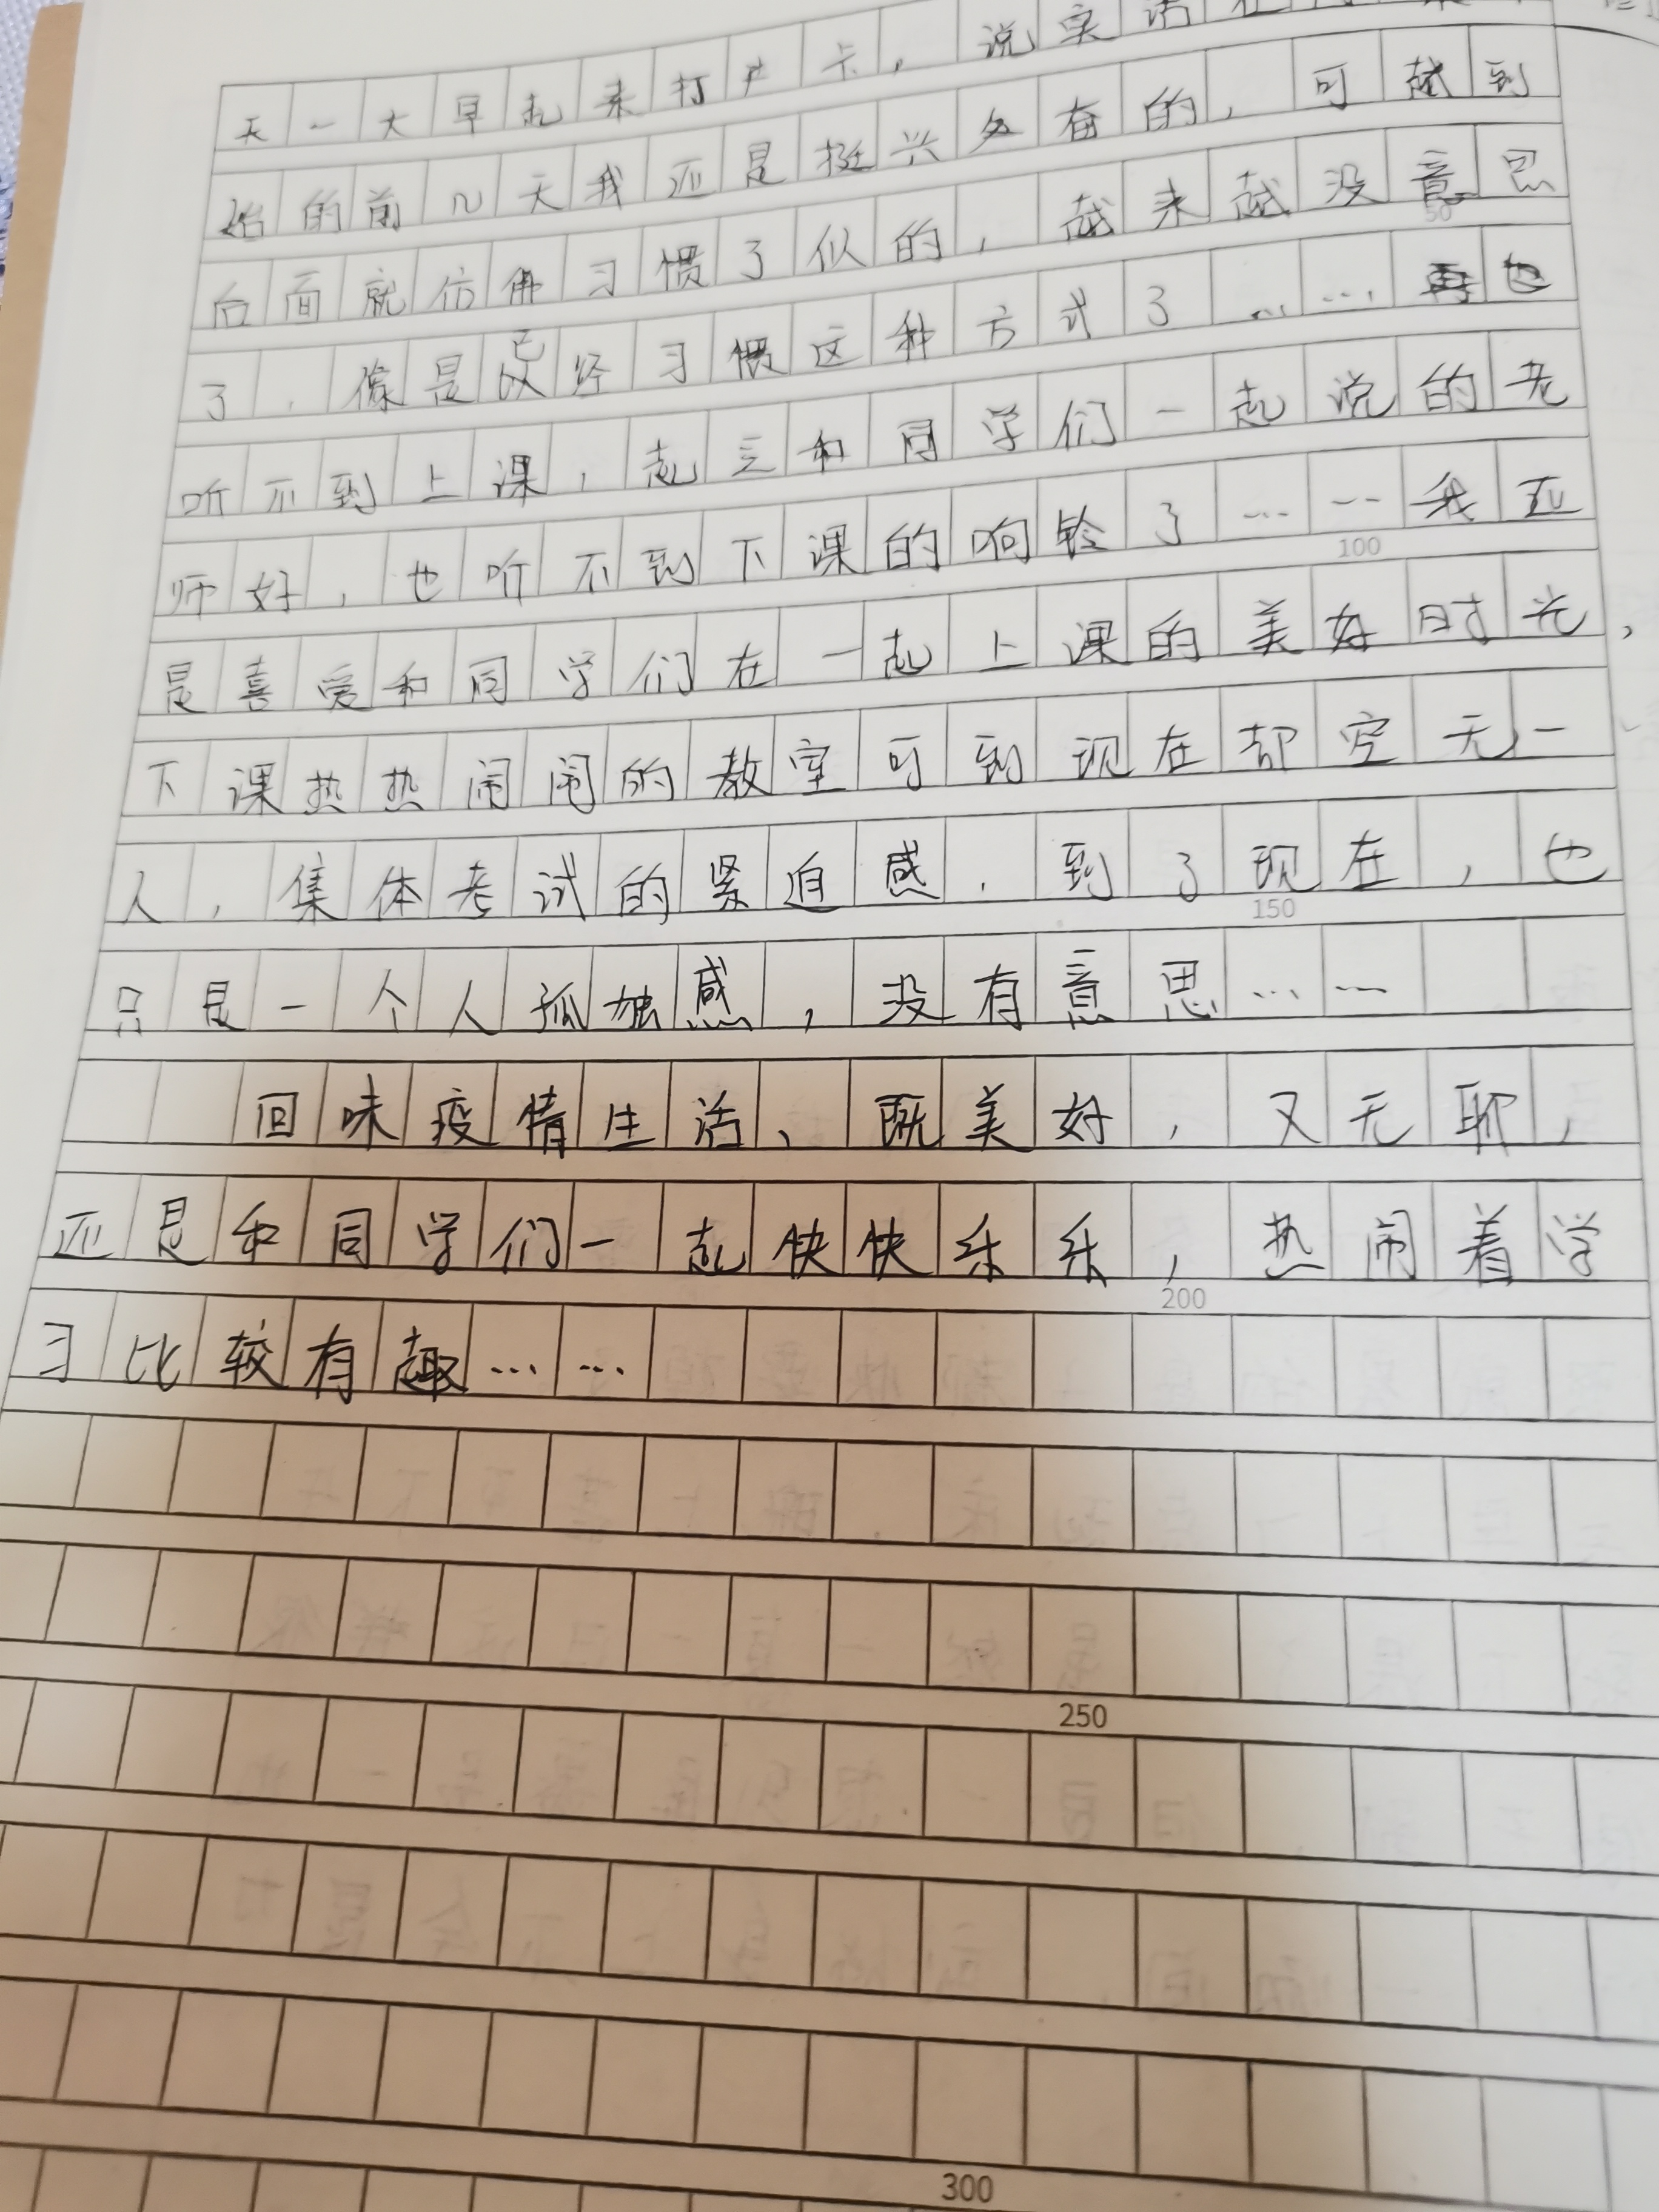 天一大早起来打卡，说实话在
始的前几天我还是挺兴奋的，可越到
后面就仿佛习惯了似的，越来越没意思
了，像是已经习惯这种方式了……再也
听不到上课，起立和同学们一起说的老
师好，也听不到下课的响铃了……我还
是喜爱和同学们在一起上课的美好时光，
下课热热闹闹的教室可到现在却空无一
人，集体考试的紧迫感，到了现在，也
只是一个人孤独感，没有意思……
回味疫情生活、既美好，又无聊，
还是和同学们一起快快乐乐，热闹着学
习比较有趣……
50
100
150
200
250
300